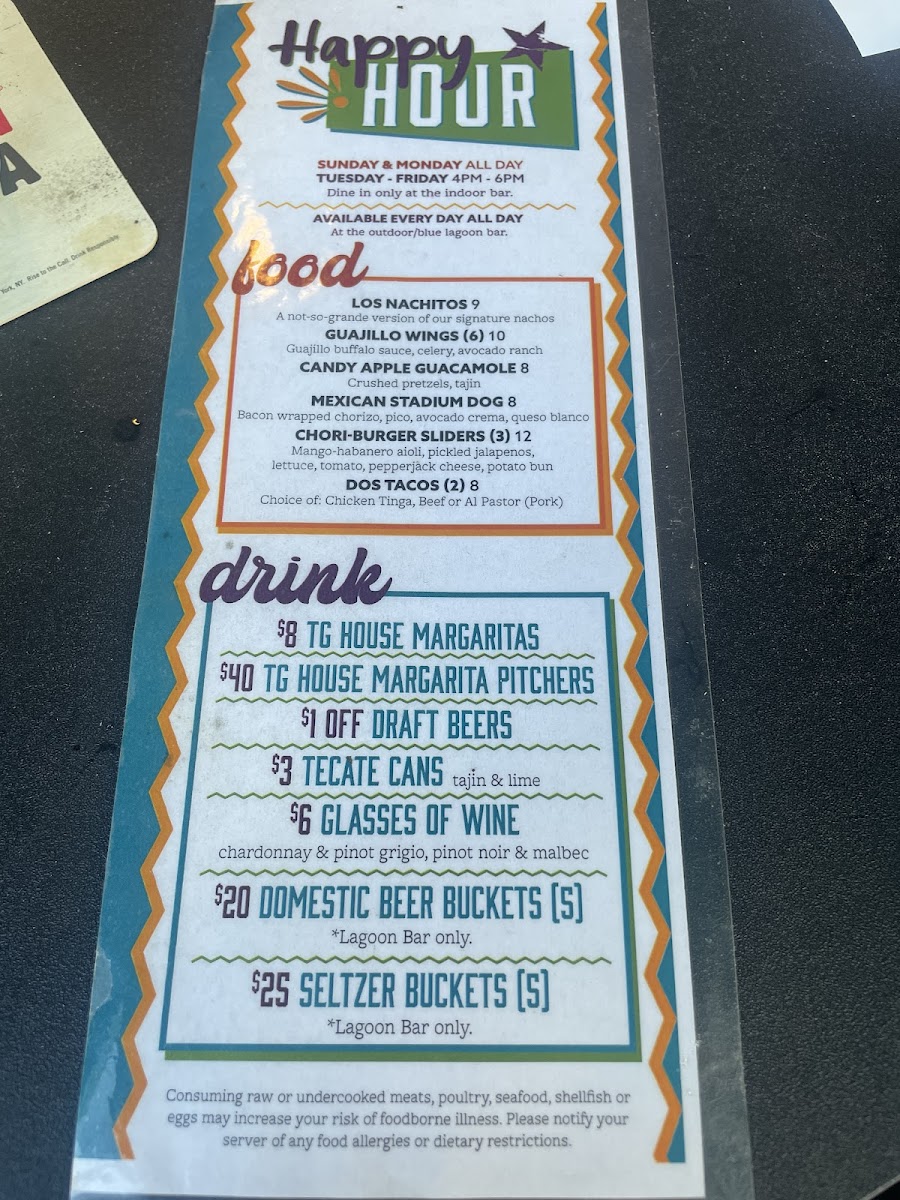 Happy
HOUR
SUNDAY & MONDAY ALL DAY
TUESDAY - FRIDAY 4PM - 6PM
Dine in only at the indoor bar.
AVAILABLE EVERY DAY ALL DAY
At the outdoor/blue lagoon bar.
A
York, NY. Rise to the Call. Drink Responsibly.
food
LOS NACHITOS 9
A not-so-grande version of our signature nachos
GUAJILLO WINGS (6) 10
Guajillo buffalo sauce, celery, avocado ranch
CANDY APPLE GUACAMOLE 8
Crushed pretzels, tajin
MEXICAN STADIUM DOG 8
Bacon wrapped chorizo, pico, avocado crema, queso blanco
CHORI-BURGER SLIDERS (3) 12
Mango-habanero aioli, pickled jalapenos,
lettuce, tomato, pepperjack cheese, potato bun
DOS TACOS (2) 8
Choice of: Chicken Tinga, Beef or Al Pastor (Pork)
drink
$8 TG HOUSE MARGARITAS
$40 TG HOUSE MARGARITA PITCHERS
$1 OFF DRAFT BEERS
$3 TECATE CANS tajin & lime
$6 GLASSES OF WINE
chardonnay & pinot grigio, pinot noir & malbec
$20 DOMESTIC BEER BUCKETS (5)
*Lagoon Bar only.
$25 SELTZER BUCKETS (5)
*Lagoon Bar only.
Consuming raw or undercooked meats, poultry, seafood, shellfish or
eggs may increase your risk of foodborne illness. Please notify your
server of any food allergies or dietary restrictions.